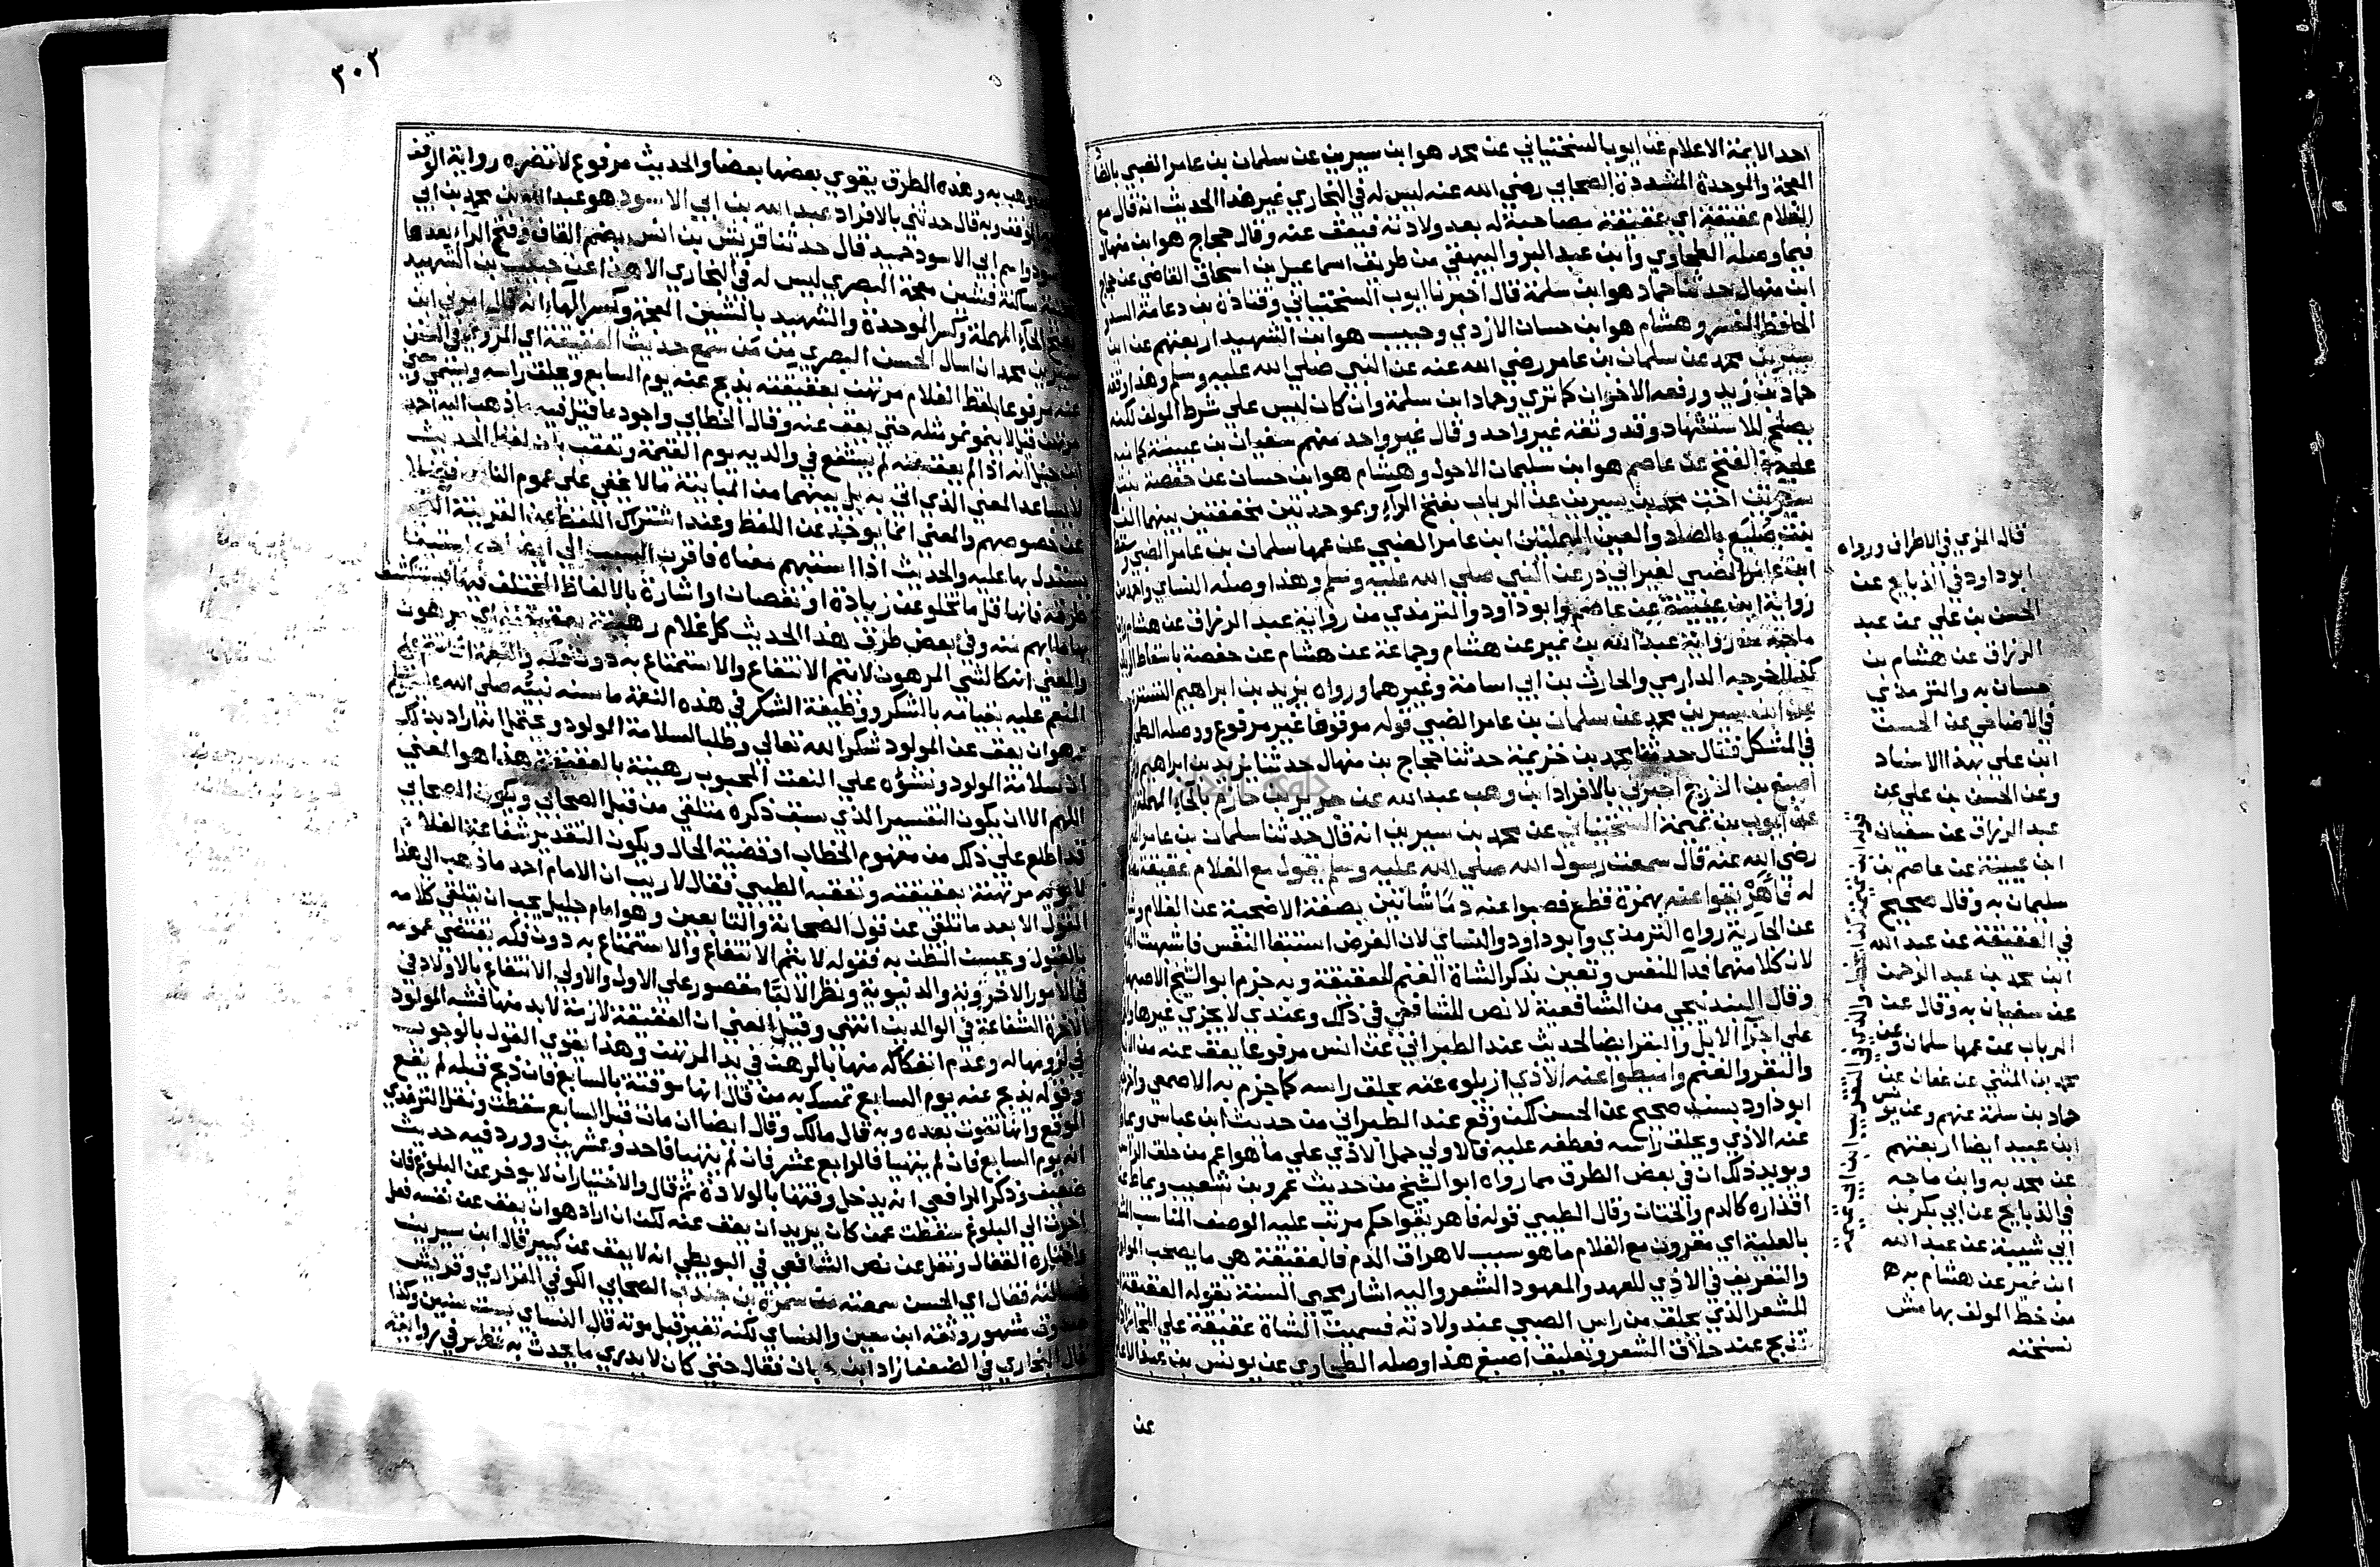 احد الايمة الاعلام عن ايوب السختياني عن محمد هو ابن سيرين عن سلمان بن عامر الضبي بالضا
المعجمة والموحدة المشددة الصحابي رضي الله عنه ليس له في البخاري غير هذا الحديث انه قال مع
الغلام عقيقة اي عقيقة مصاحبة له بعد ولادته فيعق عنه وقال حجاج هو ابن منهال
فيما وصله الطحاوي وابن عبد البر والبيهقي من طريق اسماعيل بن اسحاق القاضي عن حجاج
ابن منهال حدثنا حماد هو ابن سلمة قال اخبرنا ايوب السختياني وقتادة بن دعامة السدو
الحافظ المفسر وهشام هو ابن حسان الازدي وحبيب هو ابن الشهيد اربعتهم عن ابن
سيرين محمد عن سلمان بن عامر رضي الله عنه عن النبي صلى الله عليه وسلم وهذا وقفه
حماد بن زيد ورفعه الاخوان كما تري وحماد ابن سلمة وان كان ليس علي شرط المولف لكنه
يصلح للاستشهاد وقد وثقه غير واحد وقال غير واحد منهم سفيان بن عيينة كما نبه
عليه في الفتح عن عاصم هو ابن سليمان الاحول وهشام هو ابن حسان عن حفصة بنت
سيرين اخت محمد بن سيرين عن الرباب بفتح الراء وبموحدتين مخففتين بينهما الف
بنت صليع بالصاد والعين المهملتين ابن عامر الضبي عن عمها سلمان بن عامر الضبي
ابن عامر الضبي لغير ابي ذر عن النبي صلي الله عليه وسلم وهذا وصله النساي واحمد من
رواية ابن عيينة عن عاصم وابو داود والترمذي من رواية عبد الرزاق عن هشام
ماجة من رواية عبد الله بن نمير عن هشام وجماعة عن هشام عن حفصة باسقاط الرباب
كذا اخرجه الدارمي والحارث بن ابي اسامة وغيرهما ورواه يزيد بن ابراهيم التستري
عن ابن سيرين محمد عن سلمان بن عامر الضبي قوله موقوفا غير مرفوع ووصله الطحا
في المشكل فقال حدثنا محمد بن خزيمة حدثنا حجاج بن منهال حدثنا يزيد بن ابراهيم
اصبغ بن الفرج اخبرني بالافراد ابن وهب عبد الله عن جرير بن حازم بالحاء المهملة
عن ايوب بن تميمة السختياني عن محمد بن سيرين انه قال حدثنا سلمان بن عامر
رضي الله عنه قال سمعت رسول الله صلي الله عليه وسلم يقول مع الغلام عقيقة
له فاهريقوا عنه بهمزة قطع فصبوا عنه دما شاتين بصفة الاضحية عن الغلام
عن الجارية رواه الترمذي وابو داود والنساي لان الغرض استبقا النفس فاشبهت
لان كلا منهما فدا للنفس وتعين بذكر الشاة الغنم للعقيقة وبه جزم ابو الشيخ الاصبها
وقال البندنيجي من الشافعية لا نص للشافعي في ذلك وعندي لا يجزي غيرها
علي اجزا الابل والبقر ايضا لحديث عند الطبراني عن انس مرفوعا يعق عنه من
والبقر والغنم واميطوا عنه الاذي ازيلوه عنه بحلق راسه كما جزم به الاصمعي
ابو داود بسند صحيح عن الحسن لكن وقع عند الطبراني من حديث ابن عباس
عنه الاذي ويحلق راسه فعطفه عليه فالاولي حمل الاذي علي ما هو اعم من حلق الراس
ويويد ذلك ان في بعض الطرق مما رواه ابو الشيخ من حديث عمرو بن شعيب ويماط عنه
اقذاره كالدم والختان وقال الطيبي قوله فاهريقوا حكم مرتب علي الوصف المناسب
بالعلية اي مقرون مع الغلام ما هو سبب لاهراق الدم فالعقيقة هي ما يصحب المولو
والتعريف في الاذي للعهد والمعهود الشعر واليه اشار محيي السنة بقوله العقيقة
للشعر الذي يحلق من راس الصبي عند ولادته فسميت الشاة عقيقة علي المجاز
تذبح عند حلاق الشعر وتعليق اصبغ هذا وصله الطحاوي عن يونس بن عبد الاعلي
عن
قال المزي في الاطراف ورواه
ابو داود في الذبايح عن
الحسن بن علي عن عبد
الرزاق عن هشام بن
حسان به والترمذي
في الاضاحي عن الحسن
ابن علي بهذا الاسناد
وعن الحسن بن علي عن
عبد الرزاق عن سفيان
ابن عيينة عن عاصم بن
سليمان به وقال صحيح
في العقيقة عن عبد الله
ابن محمد بن عبد الرحمن
عن سفيان به وقال عن
الرباب عن عمها سلمان وعن
محمد بن المثني عن عفان عن
حماد بن سلمة عنهم وعن يونس
ابن عبيد ايضا اربعتهم
عن محمد به وابن ماجه
في الذبايح عن ابي بكر بن
ابي شيبة عن عبد الله
ابن نمير عن هشام به ه
من خط المولف بهامش
نسخته
٣٠٢
وهب به وهذه الطرق يقوي بعضها بعضا والحديث مرفوع لا تضره رواية الوقف
وبه قال حدثني بالافراد عبد الله بن ابي الاسود هو عبد الله بن محمد بن ابي
الاسود واسم ابي الاسود حميد قال حدثنا قريش بن انس بضم القاف وفتح الراء بعدها
تحتية ساكنة فشين معجمة البصري ليس له في البخاري الا هذا عن حبيب بن الشهيد
بفتح الحاء المهملة وكسر الموحدة والشهيد بالشين المعجمة وكسر الهاء انه قال امرني ابن
سيرين محمد ان اسال الحسن البصري ممن سمع حديث العقيقة اي المروي في السنن
عنه مرفوعا بلفظ الغلام مرتهن بعقيقته يذبح عنه يوم السابع ويحلق راسه ويسمي
مرتهن قيل لا ينمو نمو مثله حتي يعق عنه وقال الخطابي واجود ما قيل فيه ما ذهب اليه احمد
ابن حنبل انه اذا لم يعق عنه لم يشفع في والديه يوم القيمة وتعقب بان لفظ الحديث
لا يساعد المعني الذي اتي به بل بينهما من المباينة ما لا يخفي علي عموم الناس فضلا
عن خصوصهم والمعني انما يوخذ عن اللفظ وعند اشتراك اللفظ عن القرينة التي
يستدل بها عليه والحديث اذا استبهم معناه فاقرب السبب الي ايضاحه استيفا
طرقه فانها قل ما تخلو عن زيادة او نقصان او اشارة بالالفاظ المختلف فيها فيستكشف
بها ما ابهم منه وفي بعض طرق هذا الحديث كل غلام رهينة بعقيقته اي مرهون
والمعني انه كالشي المرهون لا يتم الانتفاع والاستمتاع به دون فكه والنعمة انما تتم علي
المنعم عليه بقيامه بالشكر ووظيفة الشكر في هذه النعمة ما سنه نبيه صلي الله عليه وسلم
وهو ان يعق عن المولود شكرا لله تعالي وطلبا لسلامة المولود ويحتمل انه اراد بذلك
ان سلامة المولود ونشؤه علي النعت المحبوب رهينة بالعقيقة هذا هو المعني
اللهم الا ان يكون التفسير الذي سبق ذكره متلقي من قبل الصحابي ويكون الصحابي
قد اطلع علي ذلك من مفهوم الخطاب او قضية الحال ويكون التقدير شفاعة الغلام
لابويه مرتهنة بعقيقته وتعقبه الطيبي فقال لا ريب ان الامام احمد ما ذهب الي هذا
القول الا بعد ما تلقي عن قول الصحابة والتابعين وهو امام جليل يجب ان يتلقي كلامه
بالقبول ويحسن الظن به فقوله لا يتم الانتفاع والاستمتاع به دون فكه يقتضي عمومه
في الامور الاخروية والدنيوية ونظر الالبا مقصور علي الاول والاولي الانتفاع بالاولاد في
الاخرة الشفاعة في الوالدين انتهي وقيل المعني ان العقيقة لازمة لا بد منها فشبه المولود
في لزومها له وعدم انفكاكه منها بالرهن في يد المرتهن وهذا يقوي القول بالوجوب
وقوله يذبح عنه يوم السابع تمسك به من قال انها موقتة بالسابع فان ذبح قبله لم يقع
الموقع وانها تفوت بعده وبه قال مالك وقال ايضا ان مات قبل السابع سقطت ونقل الترمذي
انه يوم السابع فان لم يتهيا فالرابع عشر فان لم يتهيا فاحد وعشرين وورد فيه حديث
ضعيف وذكر الرافعي انه يدخل وقتها بالولادة ثم قال والاختيار ان لا يوخر عن البلوغ فان
اخرت الي البلوغ سقطت عمن كان يريد ان يعق عنه لكن ان اراد هو ان يعق عن نفسه فعل
واختاره القفال ونقل عن نص الشافعي في البويطي انه لا يعق عن كبير قال ابن سيرين
فسالته فقال اي الحسن سمعته من سمرة بن جندب الصحابي الكوفي الفزاري وقريش
صدوق مشهور وثقه ابن معين والنساي لكنه تغير قبل موته قال النساي بست سنين وكذا
قال البخاري في الضعفا زاد ابن حبان فقال حتي كان لا يدري ما يحدث به فظهر في روايته